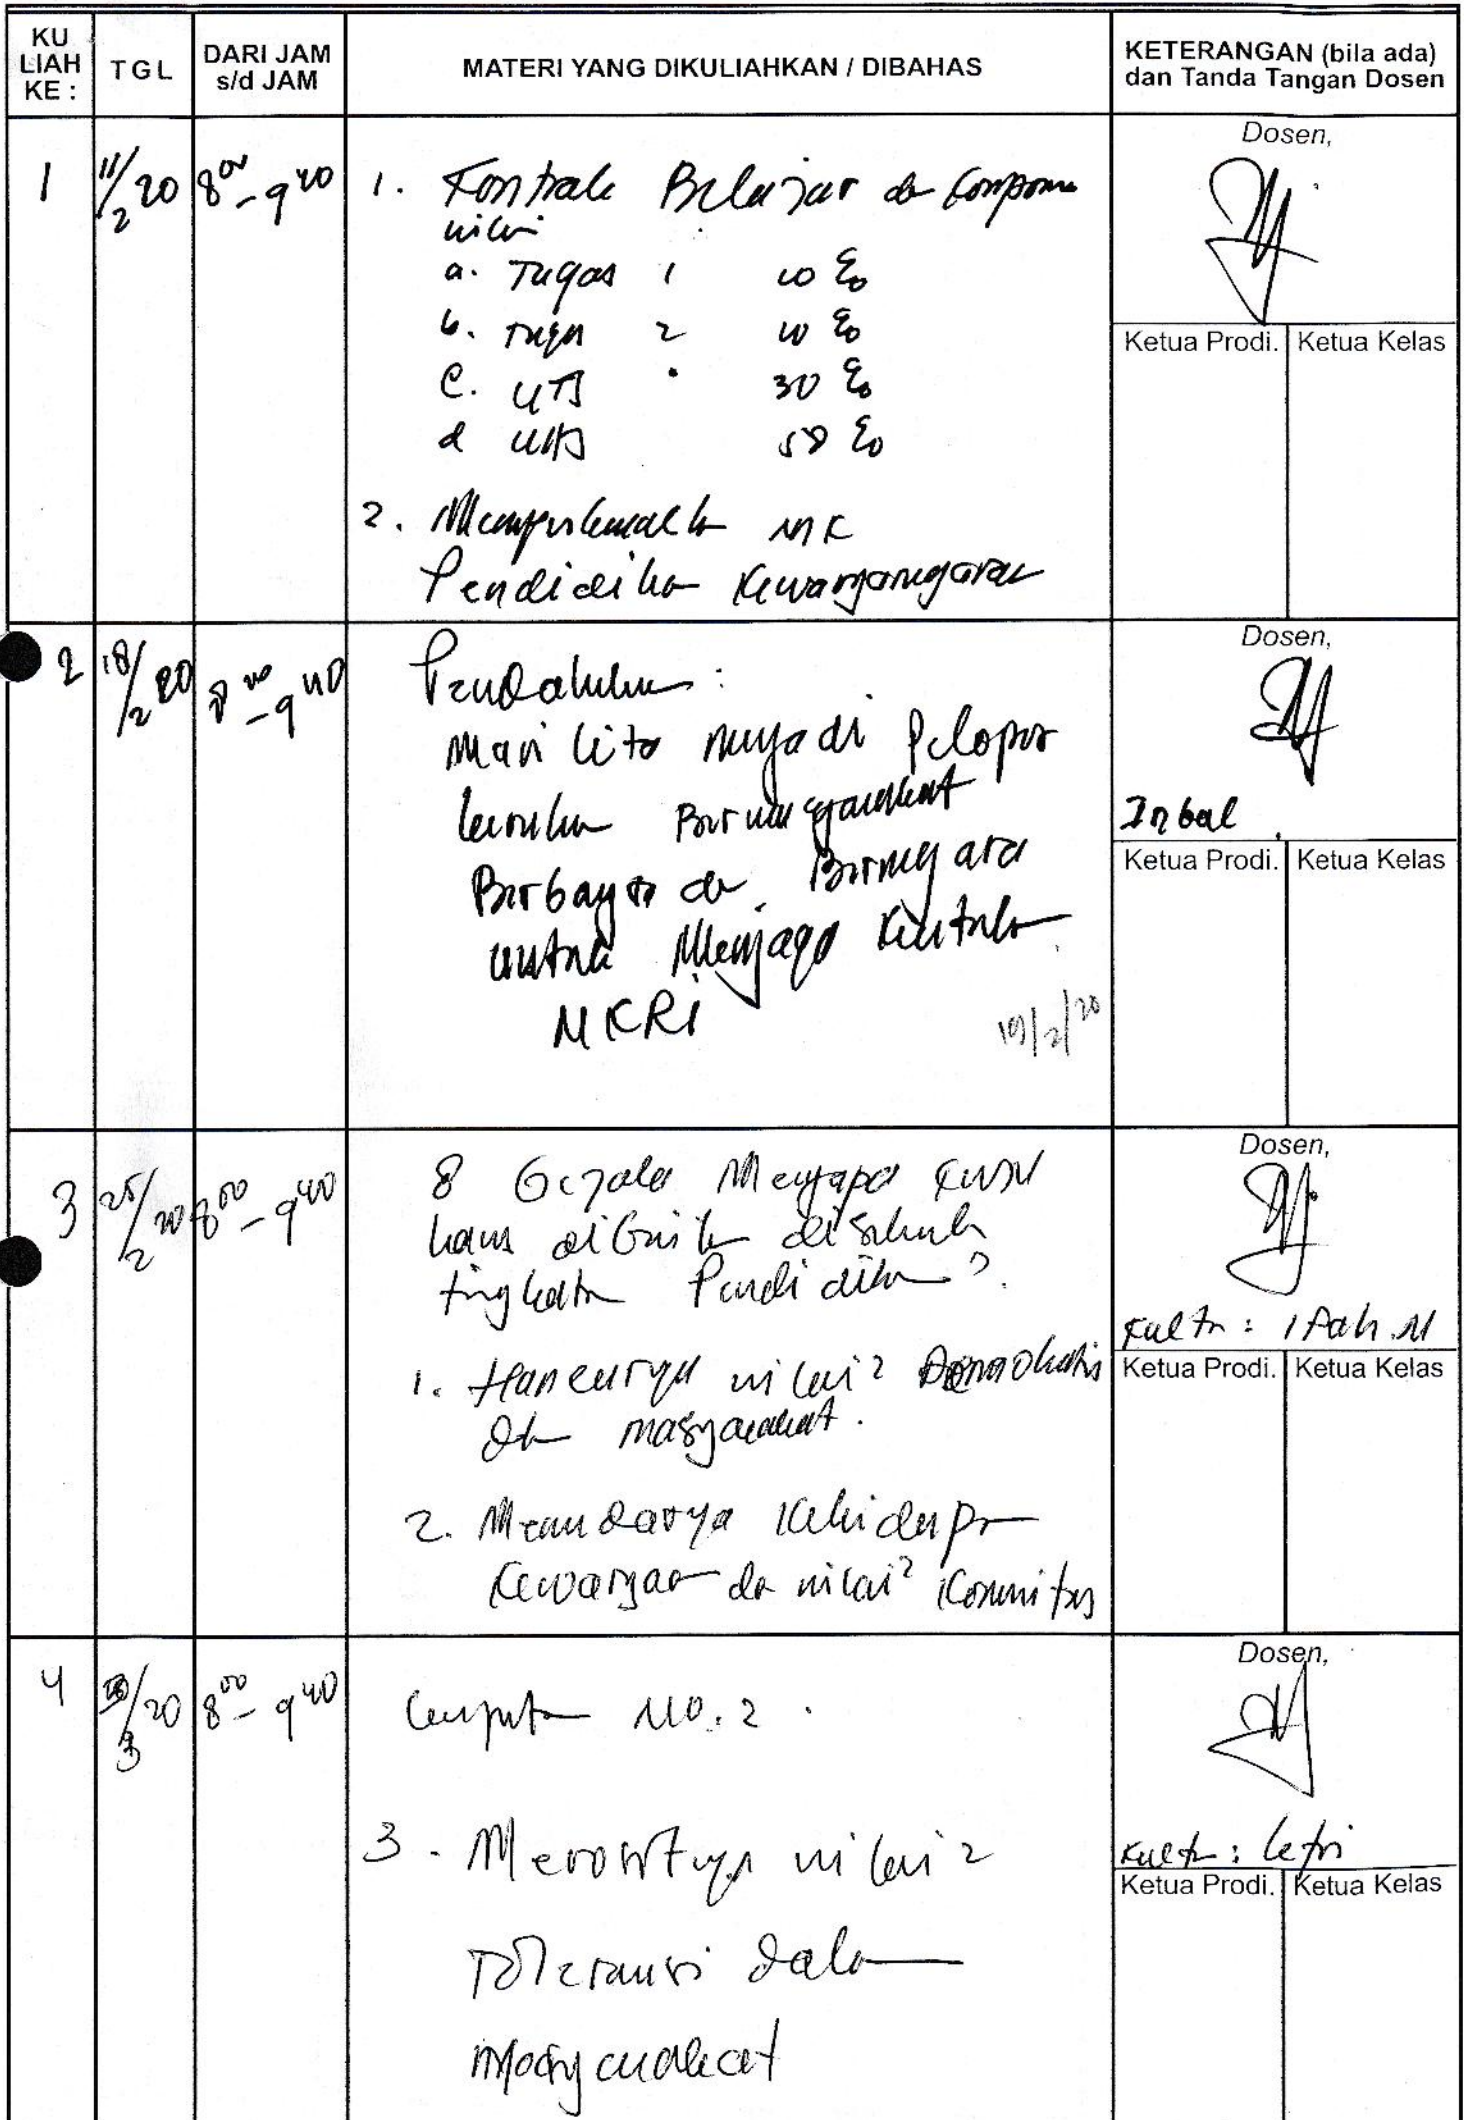 KU LIAH KE :
TGL
DARI JAM s/d JAM
MATERI YANG DIKULIAHKAN / DIBAHAS
KETERANGAN (bila ada) dan Tanda Tangan Dosen
1
11/2 20
8 00 - 9 40
1. Kontrak Belajar
nilai
a. Tugas 1 10 %
b. Tugas 2 10 %
c. UTS 30 %
d UAS 50 %
2. MK
Pendidikan Kewarganegaraan
Dosen,
Ketua Prodi. Ketua Kelas
2
18/2 20
8 00 - 9 40
Pendahuluan :
Mari kita menjadi Pelopor
Bermasyarakat
Berbangsa dan Bernegara
untuk Menjaga Keutuhan
NKRI
19/2/20
Dosen,
Ketua Prodi. Ketua Kelas
3
25/2 20
8 00 - 9 40
8 Gejala Mengapa
harus
tingkatan Pendidikan ?
1. Hancurnya nilai2 Demokratis
masyarakat.
2. Memudarnya Kehidupan
Kewargaan dan nilai2 Komunitas
Dosen,
Kultum :
Ketua Prodi. Ketua Kelas
4
/3 20
8 00 - 9 40
Lanjutan No. 2
3. Merosotnya nilai2
Toleransi dalam
Masyarakat
Dosen,
Kultum :
Ketua Prodi. Ketua Kelas